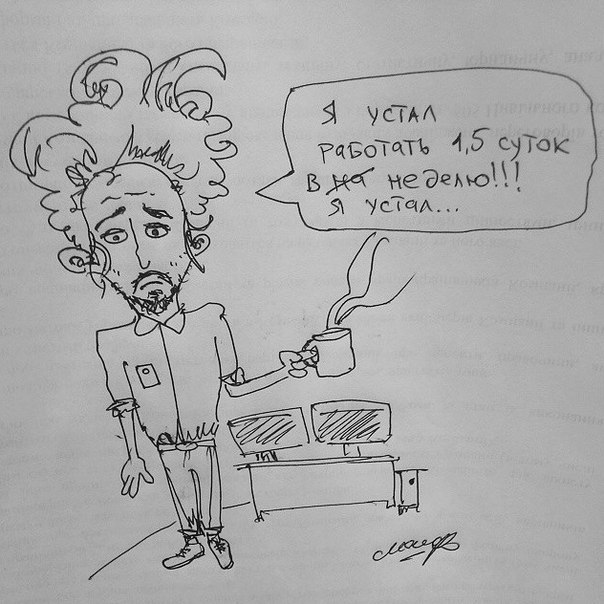 Я УСТАЛ
РАБОТАТЬ 1,5 СУТОК
В НЕДЕЛЮ!!!
Я УСТАЛ...